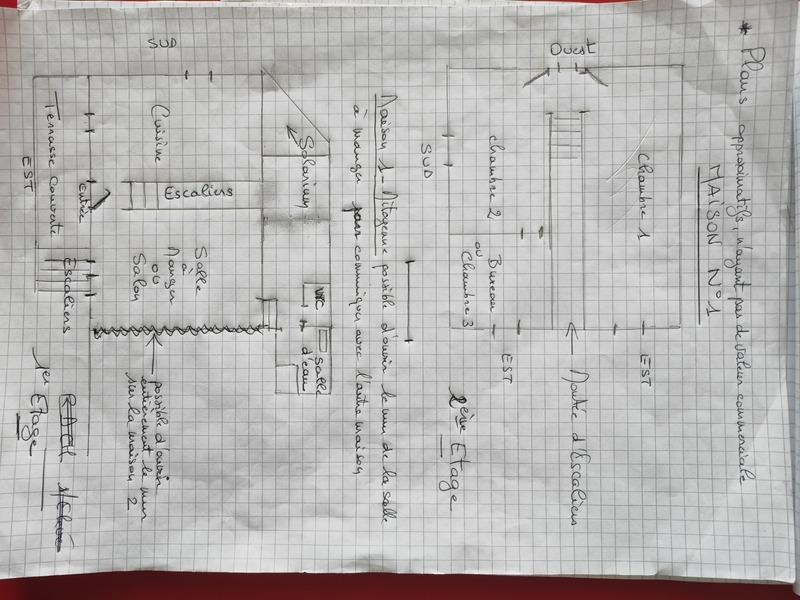 * Plans approximatifs, n'ayant pas de valeur commerciale
MAISON N°1
Ouest
Chambre 1
EST
chambre 2
SUD
Bureau
ou
Chambre 3
EST
Montée d'Escaliers
2ème Etage
Maison 1 - Mitoyenne possible d'ouvrir le mur de la salle
à manger pour communiquer avec l'autre maison
SUD
Solarium
WC
Salle
d'eau
Cuisine
Escaliers
Salle
à
Manger
ou
Salon
Entrée
Terrasse couverte
Escaliers
EST
possible d'ouvrir
entièrement le mur
sur la maison 2
1er Etage